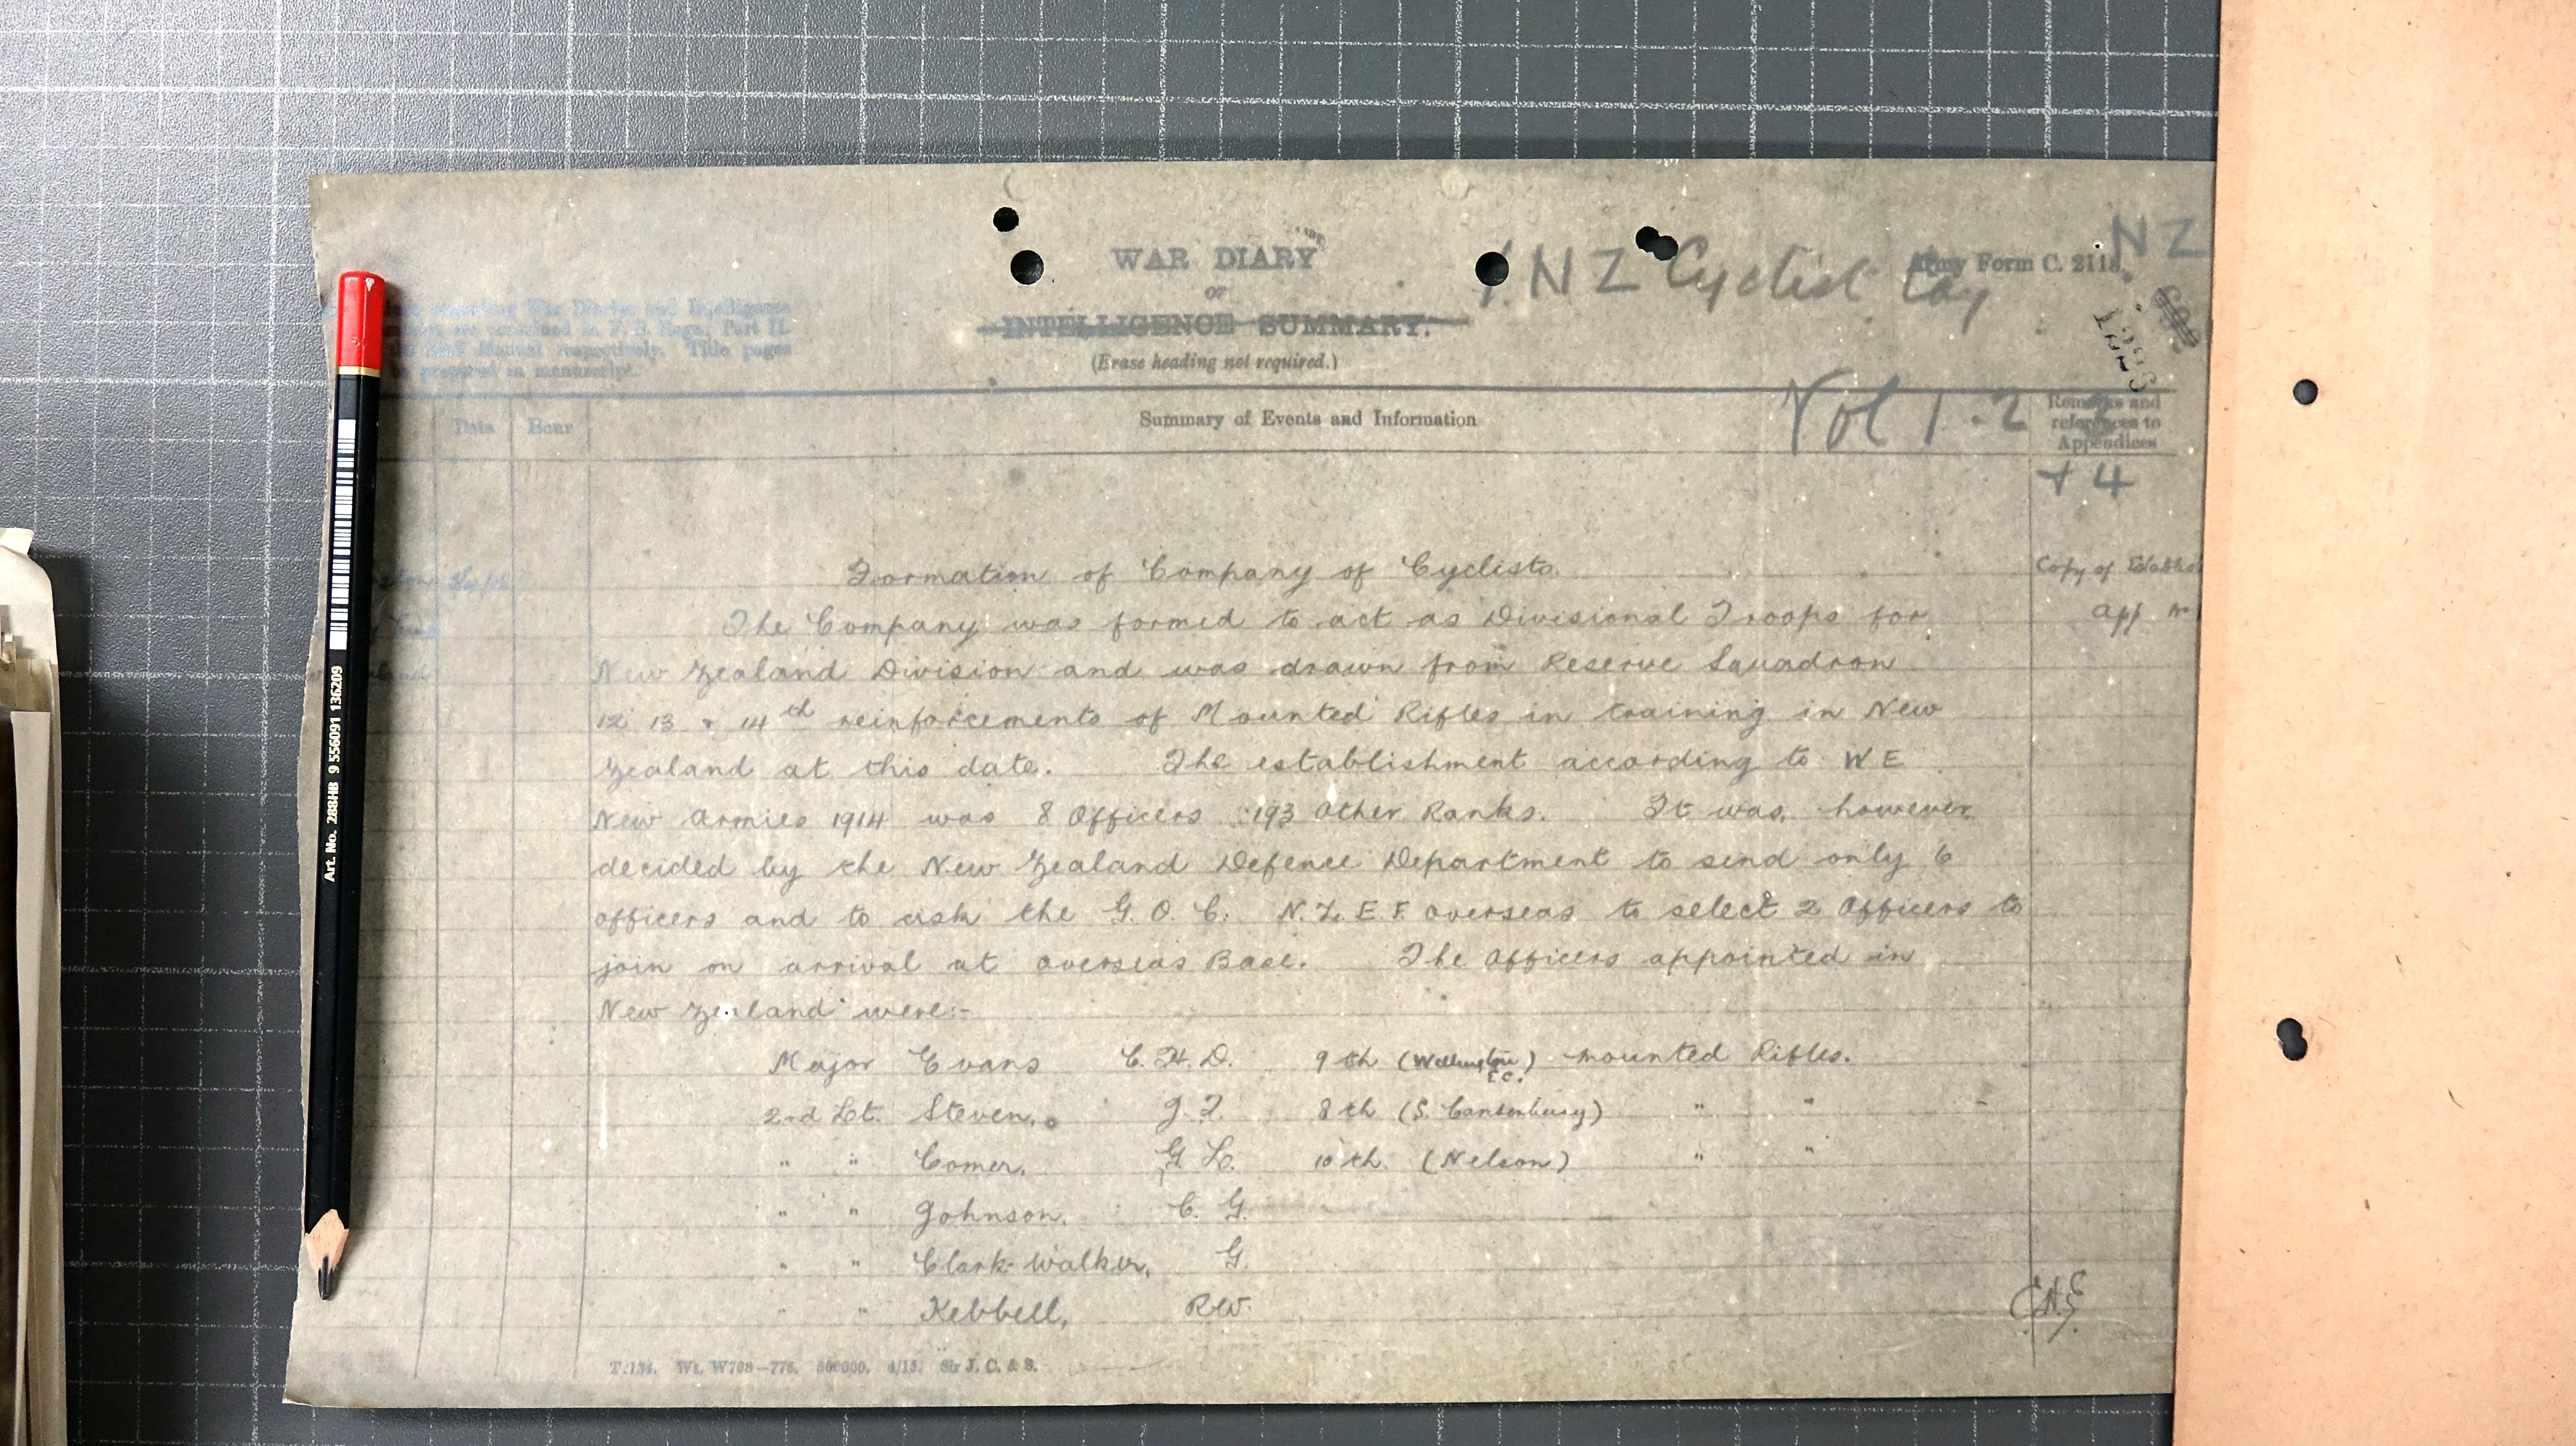 WAR DIARY
or
INTELLIGENCE SUMMARY.
(Erase heading not required.)
regarding War Diaries and Intelligence
are contained in F. S. Regs., Part II.
Manual respectively. Title pages
prepared in manuscript.
NZ Cyclist Coy
Army Form C. 2118.
NZ
Date
Hour
Summary of Events and Information
Vol 1.2
Remarks and
references to
Appendices
+ 4
Formation of Company of Cyclists.
Copy of
The Company was formed to act as Divisional Troops for
App
New Zealand Division and was drawn from Reserve Squadron
12 13 & 14th reinforcements of Mounted Rifles in training in New
Zealand at this date. The establishment according to W E
New Armies 1914 was 8 Officers 193 Other Ranks. It was, however
decided by the New Zealand Defence Department to send only 6
officers and to ask the G. O. C. N. Z. E. F. overseas to select 2 Officers to
join on arrival at overseas Base. The Officers appointed in
New Zealand were:-
Major Evans C. H. D. 9th (Wellington E.C.) Mounted Rifles.
2nd Lt. Steven. J. T. 8th (S. Canterbury) " "
" " Comer. G. L. 10th. (Nelson) " "
" " Johnson. C. G.
" " Clark-Walker, G.
" " Kebbell, R.W.
T.134. Wt. W708—776. 500000. 4/15. Sir J. C. & S.
Art. No. 288HB 9 556091 136209